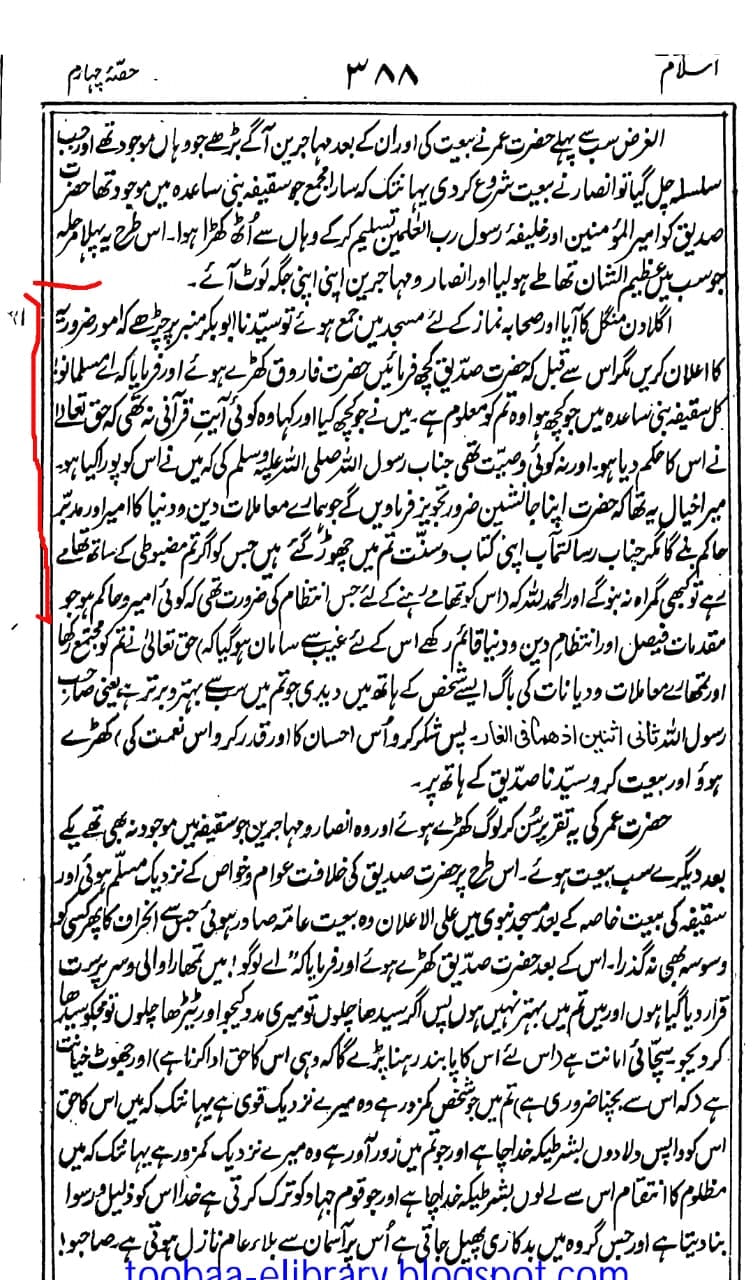 اسلام ۳۸۸ حصّۂ چہارم
الغرض سب سے پہلے حضرت عمر نے بیعت کی اور ان کے بعد مہاجرین آگے بڑھے جو وہاں موجود تھے اور جب
سلسلہ چل گیا تو انصار نے بیعت شروع کر دی یہانتک کہ سارا مجمع جو سقیفہ بنی ساعدہ میں موجود تھا حضرت
صدیق کو امیر المؤمنین اور خلیفۂ رسول رب العٰلمین تسلیم کر کے وہاں سے اُٹھ کھڑا ہوا۔ اس طرح یہ پہلا مرحلہ
جو سب میں عظیم الشان تھا طے ہو لیا اور انصار و مہاجرین اپنی اپنی جگہ لَوٹ آئے۔
اگلا دن منگل کا آیا اور صحابہ نماز کے لئے مسجد میں جمع ہوئے تو سیّدنا ابوبکر منبر پر چڑھے کہ امور ضروریہ
کا اعلان کریں مگر اس سے قبل کہ حضرت صدّیق کچھ فرمائیں حضرت فاروق کھڑے ہوئے اور فرمایا کہ اے مسلمانو!
کل سقیفہ بنی ساعدہ میں جو کچھ ہوا وہ تم کو معلوم ہے۔ میں نے جو کچھ کیا اور کہا وہ کوئی آیتِ قرآنی نہ تھی کہ حق تعالےٰ
نے اس کا حکم دیا ہو۔ اور نہ کوئی وصیت تھی جناب رسول اللہ صلی اللہ علیہ وسلم کی کہ میں نے اس کو پورا کیا ہو۔
میرا خیال یہ تھا کہ حضرت اپنا جانشین ضرور تجویز فرماویں گے جو ہمارے معاملات دین و دنیا کا امیر اور مدبّر
حاکم بنے گا مگر جناب رسالتمآب اپنی کتاب و سنّت تم میں چھوڑ گئے ہیں جس کو اگر تم مضبوطی کے ساتھ تھامے
رہے تو کبھی گمراہ نہ ہو گے اور الحمد للہ کہ (اس کو تھامے رہنے کے لئے جس انتظام کی ضرورت تھی کہ کوئی امیر و حاکم ہو جو
مقدمات فیصل اور انتظامِ دین و دنیا قائم رکھے اس کے لئے غیب سے سامان ہو گیا کہ) حق تعالیٰ نے تم کو مجتمع رکھا
اور تمھارے معاملات و دیانات کی باگ ایسے شخص کے ہاتھ میں دیدی جو تم میں سب سے بہتر و برتر ہے یعنی صاحب
رسول اللہ ثانی اثنین اذھما فی الغار۔ پس شکر کرو اُس احسان کا اور قدر کرو اس نعمت کی، کھڑے
ہوؤ اور بیعت کرو سیّدنا صدّیق کے ہاتھ پر۔
حضرت عمر کی یہ تقریر سُن کر لوگ کھڑے ہوئے اور وہ انصار و مہاجرین جو سقیفہ میں موجود نہ بھی تھے یکے
بعد دیگرے سب بیعت ہوئے۔ اس طرح پر حضرت صدیق کی خلافت عوام و خواص کے نزدیک مسلّم ہوئی اور
سقیفہ کی بیعت خاصہ کے بعد مسجد نبوی میں علی الاعلان وہ بیعت عامّہ صادر ہوئی جس سے انحراف کا پھر کسی کو
وسوسہ بھی نہ گذرا۔ اس کے بعد حضرت صدّیق کھڑے ہوئے اور فرمایا کہ "اے لوگو! میں تمھارا والی و سرپرست
قرار دیا گیا ہوں اور میں تم میں بہتر نہیں ہوں پس اگر سیدھا چلوں تو میری مدد کیجو اور ٹیڑھا چلوں تو مجکو سیدھا
کر دیجو۔ سچّائی امانت ہے (اس لئے اس کا پابند رہنا پڑے گا کہ وہی اس کا حق ادا کرنا ہے) اور جھوٹ خیانت
ہے (کہ اس سے بچنا ضروری ہے) تم میں جو شخص کمزور ہے وہ میرے نزدیک قوی ہے یہانتک کہ میں اس کا حق
اس کو واپس دلا دوں بشرطیکہ خدا چاہے اور جو تم میں زور آور ہے وہ میرے نزدیک کمزور ہے یہانتک کہ میں
مظلوم کا انتقام اس سے لے لوں بشرطیکہ خدا چاہے اور جو قوم جہاد کو ترک کرتی ہے خدا اس کو ذلیل و رسوا
بنا دیتا ہے اور جس گروہ میں بدکاری پھیل جاتی ہے اُس پر آسمان سے بلاء عام نازل ہوتی ہے۔ صاحبو!
toobaa-elibrary.blogspot.com